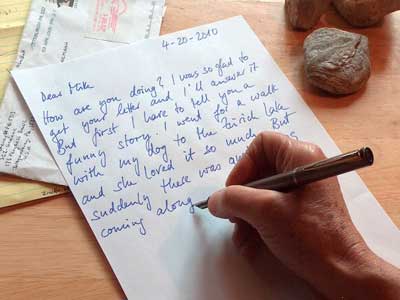 4-20-2010
Dear Mike
How are you doing? I was so glad to
get your letter and I'll answer it
But first I have to tell you a
funny story. I went for a walk
with my dog to the Zürich Lake
and she loved it so much. But
suddenly there was a
coming along